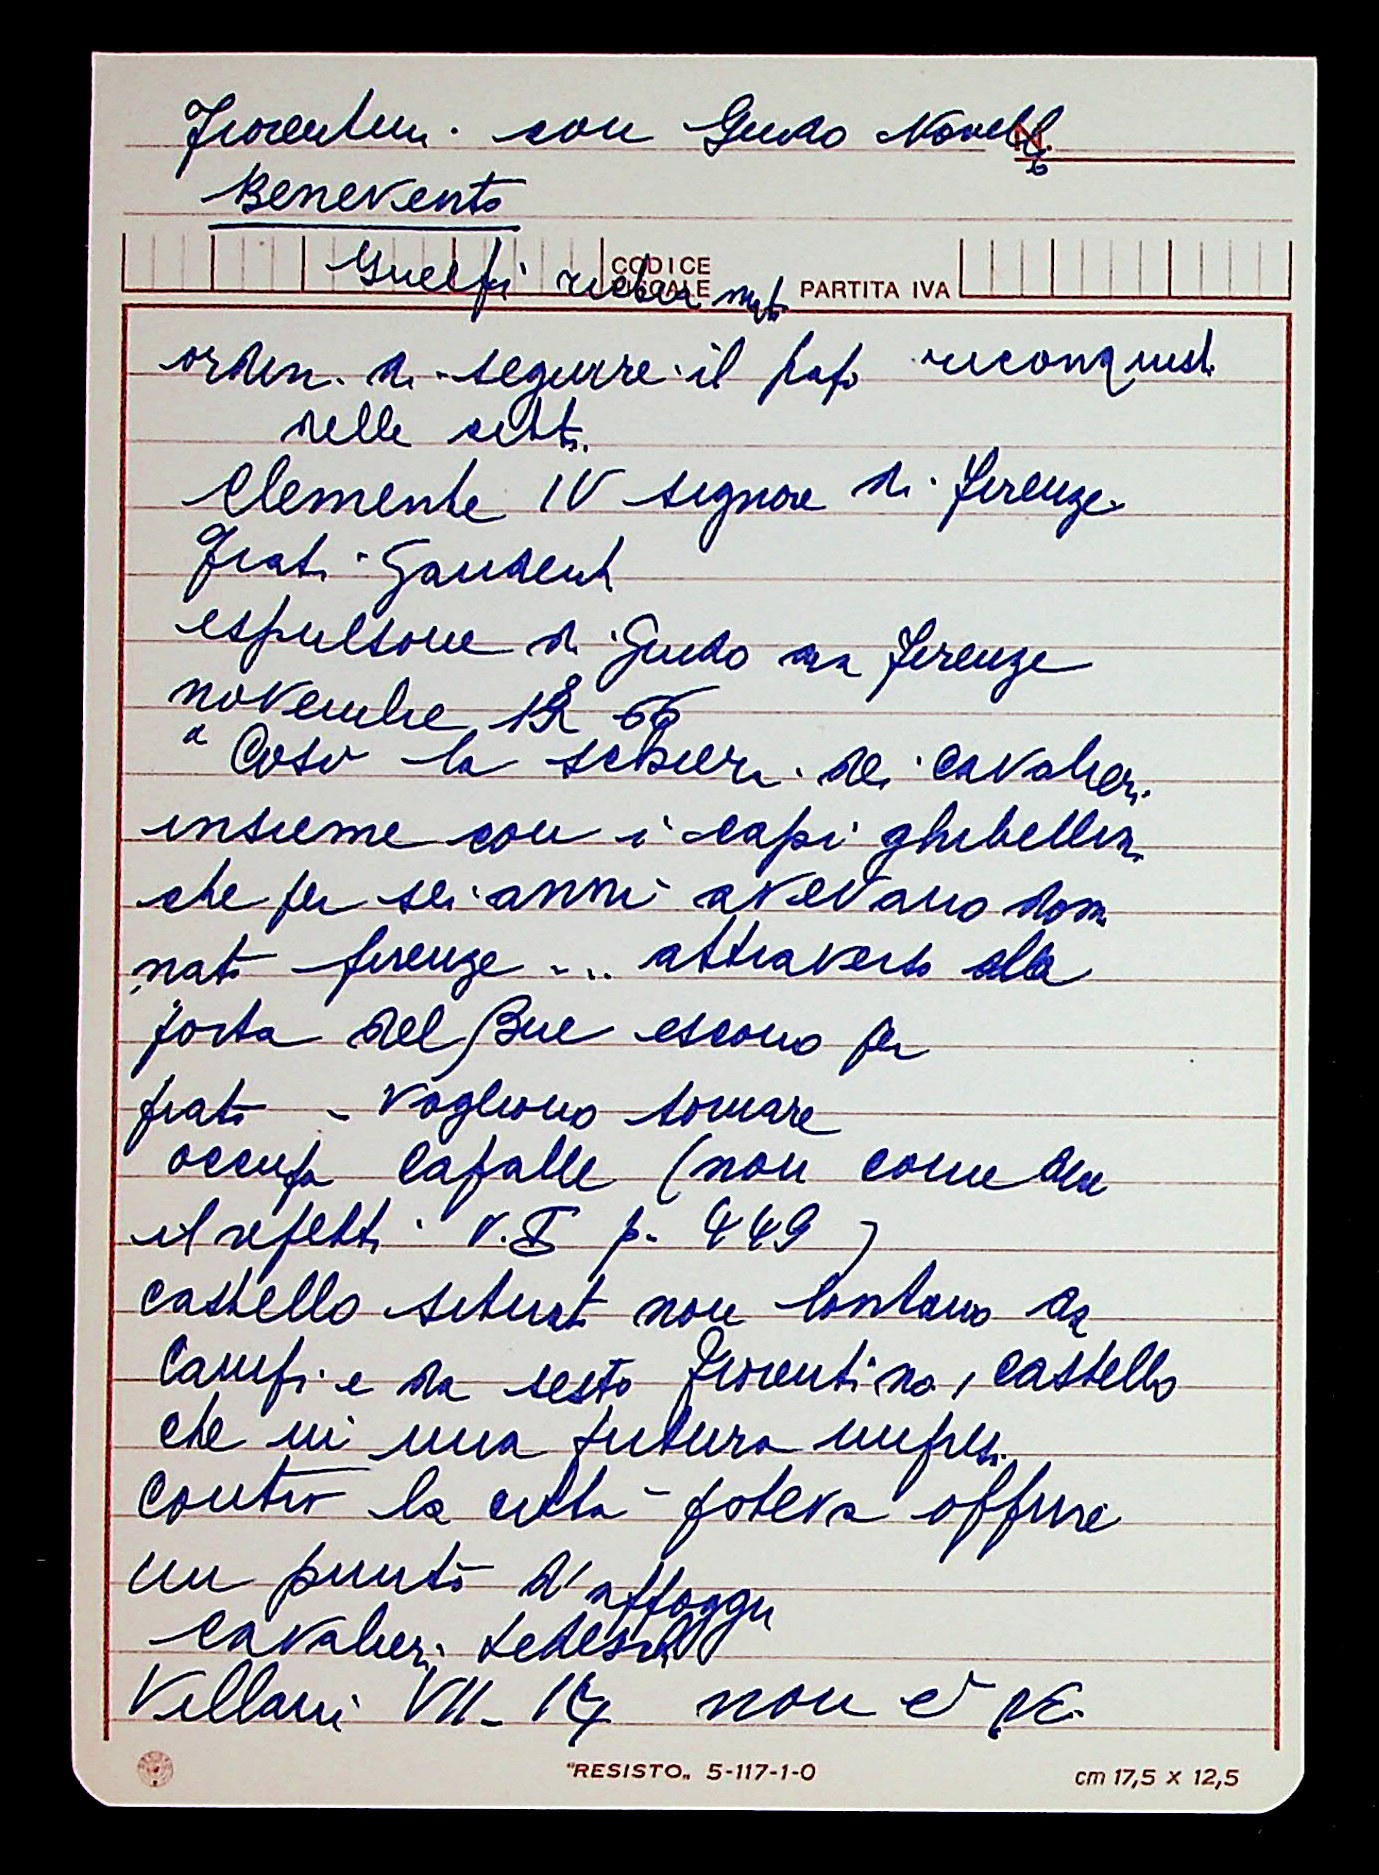 Fiorentini con Guido Novello
N.
Benevento
CODICE FISCALE PARTITA IVA
Guelfi
ordin. di seguire il papa riconquist.
nelle città
Clemente IV signore di Firenze
Frati Gaudenti
espulsione di Guido da Firenze
novembre 1266
" Così la schiera dei cavalieri
insieme con i capi ghibellini
che per sei anni avevano domi
nato Firenze ... attraverso alla
porta del Bue escono per
Prato - Vogliono tornare
occupa Capalle (non come dice
il Repetti v. I p. 449)
castello situato non lontano da
Campi e da Sesto Fiorentino, castello
che in una futura impresa
contro la città poteva offrire
un punto d'appoggio
cavalieri tedeschi
Villani VII - 14 non è
"RESISTO„ 5-117-1-0 cm 17,5 x 12,5